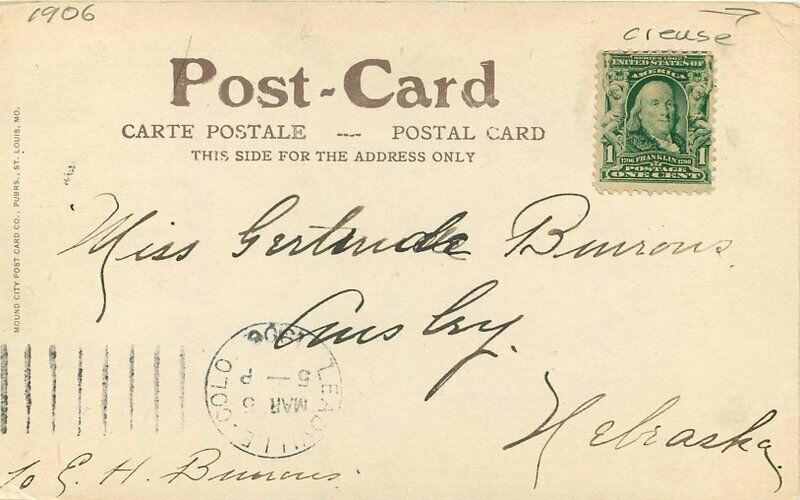 1906
crease
Post-Card
CARTE POSTALE --- POSTAL CARD
THIS SIDE FOR THE ADDRESS ONLY
SERIES 1902
UNITED STATES OF
AMERICA
1706 FRANKLIN 1790
1 POSTAGE 1
ONE CENT
MOUND CITY POST CARD CO., PUBRS., ST. LOUIS, MO.
Miss Gertrude Burrows.
Ansley.
Nebraska.
LEADVILLE, COLO.
MAR
5 — P
1906
To E. H. Burrows.